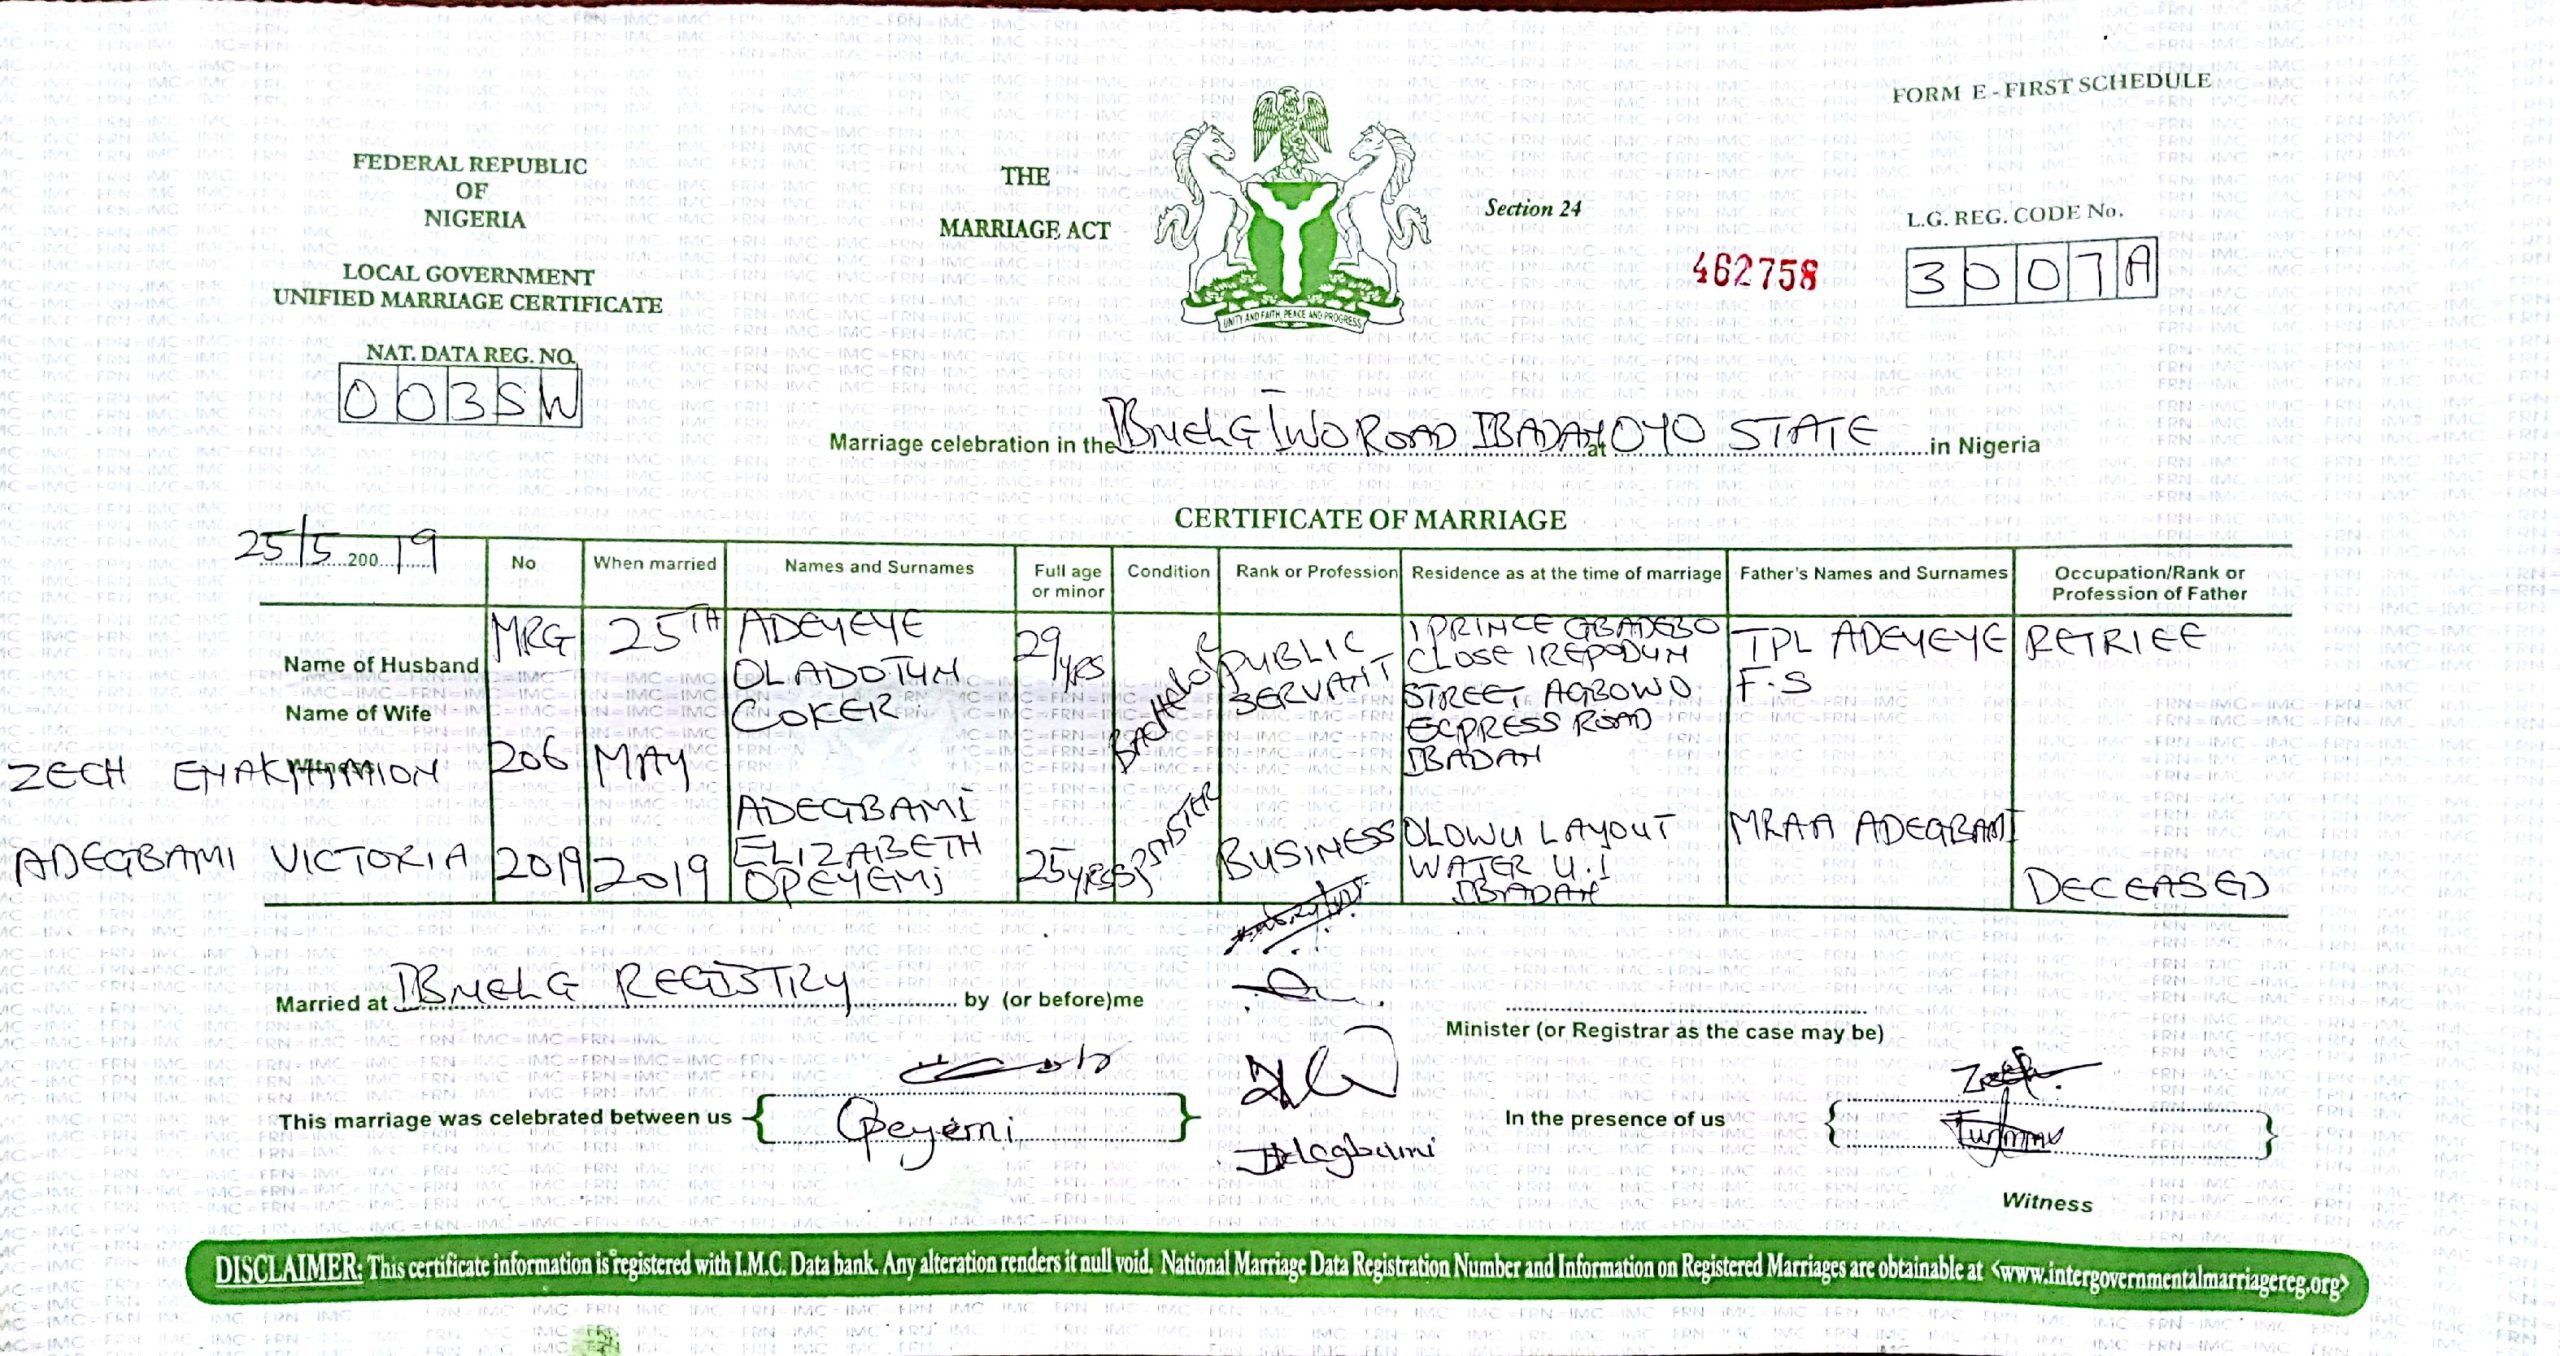 FORM E - FIRST SCHEDULE
FEDERAL REPUBLIC
OF
NIGERIA
LOCAL GOVERNMENT
UNIFIED MARRIAGE CERTIFICATE
NAT. DATA REG. NO.
003SW
THE
MARRIAGE ACT
UNITY AND FAITH, PEACE AND PROGRESS
Section 24
462758
L.G. REG. CODE No.
3007A
Marriage celebration in the IBNELG IWO ROAD IBADAN at OYO STATE in Nigeria
CERTIFICATE OF MARRIAGE
25/5 200 19
No
When married
Names and Surnames
Full age or minor
Condition
Rank or Profession
Residence as at the time of marriage
Father's Names and Surnames
Occupation/Rank or Profession of Father
Name of Husband
Name of Wife
Witness
ZECH
ADEGBAMI VICTORIA
MRG
206
2019
25TH
MAY
2019
ADEYEYE
OLADOTUN
COKER
29yrs
BACHELOR
PUBLIC
SERVANT
1 PRINCE GBADEBO
CLOSE IREPODUN
STREET AGBOWO
ECPRESS ROAD
IBADAN
TPL ADEYEYE
F.S
RETRIEE
ADEGBAMI
ELIZABETH
OPEYEMI
25yrs
SPINSTER
BUSINESS
OLOWU LAYOUT
WATER U.I
IBADAN
MR A A ADEGBAMI
DECEASED
Married at IBNELG REGISTRY by (or before)me
Minister (or Registrar as the case may be)
This marriage was celebrated between us
Opeyemi
Adegbami
In the presence of us
Witness
DISCLAIMER: This certificate information is registered with I.M.C. Data bank. Any alteration renders it null void. National Marriage Data Registration Number and Information on Registered Marriages are obtainable at <www.intergovernmentalmarriagereg.org>